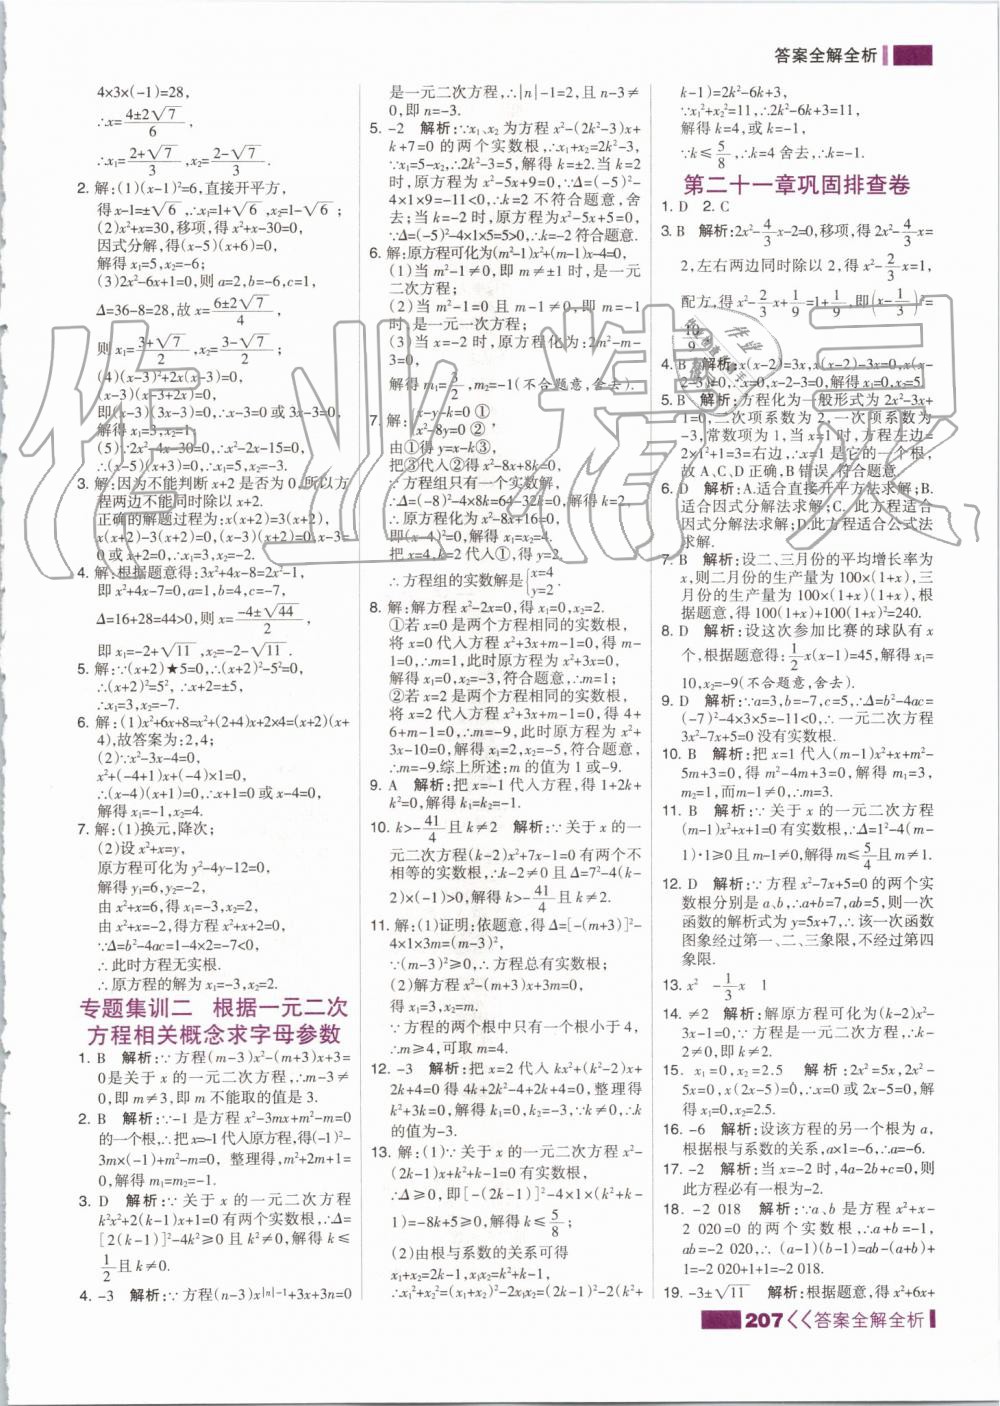 答案全解全析
4×3×(-1)=28,
∴x=(4±2√7)/6,
∴x₁=(2+√7)/3,x₂=(2-√7)/3.
2. 解:(1)(x-1)²=6,直接开平方,
得x-1=±√6,∴x₁=1+√6,x₂=1-√6;
(2)x²+x=30,移项,得x²+x-30=0,
因式分解,得(x-5)(x+6)=0,
解得x₁=5,x₂=-6;
(3)2x²-6x+1=0,则a=2,b=-6,c=1,
Δ=36-8=28,故x=(6±2√7)/4,
则x₁=(3+√7)/2,x₂=(3-√7)/2;
(4)(x-3)²+2x(x-3)=0,
(x-3)(x-3+2x)=0,
即(x-3)(3x-3)=0,∴x-3=0或3x-3=0,
解得x₁=3,x₂=1;
(5)∵2x²-4x-30=0,∴x²-2x-15=0,
∴(x-5)(x+3)=0,∴x₁=5,x₂=-3.
3. 解:因为不能判断x+2是否为0,所以方
程两边不能同时除以x+2.
正确的解题过程为:x(x+2)=3(x+2),
x(x+2)-3(x+2)=0,(x+2)(x-3)=0,x-3=
0或x+2=0,∴x₁=3,x₂=-2.
4. 解:根据题意得:3x²+4x-8=2x²-1,
即x²+4x-7=0,a=1,b=4,c=-7,
Δ=16+28=44>0,则x=(-4±√44)/2,
即x₁=-2+√11,x₂=-2-√11.
5. 解:∵(x+2)★5=0,∴(x+2)²-5²=0,
∴(x+2)²=5²,∴x+2=±5,
∴x₁=3,x₂=-7.
6. 解:(1)x²+6x+8=x²+(2+4)x+2×4=(x+2)(x+
4),故答案为:2,4;
(2)∵x²-3x-4=0,
x²+(-4+1)x+(-4)×1=0,
∴(x-4)(x+1)=0,∴x+1=0或x-4=0,
解得x₁=-1,x₂=4.
7. 解:(1)换元,降次;
(2)设x²+x=y,
原方程可化为y²-4y-12=0,
解得y₁=6,y₂=-2,
由x²+x=6,得x₁=-3,x₂=2,
由x²+x=-2,得方程x²+x+2=0,
∵Δ=b²-4ac=1-4×2=-7<0,
∴此时方程无实根.
∴原方程的解为x₁=-3,x₂=2.
专题集训二 根据一元二次
方程相关概念求字母参数
1. B 解析:∵方程(m-3)x²-(m+3)x+3=
0是关于x的一元二次方程,∴m-3≠
0,即m≠3,即m不能取的值是3.
2. B 解析:∵-1是方程x²-3mx+m²-m=0
的一个根,∴把x=-1代入原方程,得(-1)²-
3m×(-1)+m²-m=0,整理得,m²+2m+1=
0,解得m₁=m₂=-1.
3. D 解析:∵关于x的一元二次方程
k²x²+2(k-1)x+1=0有两个实数根,∴Δ=
[2(k-1)]²-4k²≥0且k²≠0,解得k≤
1/2且k≠0.
4. -3 解析:∵方程(n-3)x^(|n|-1)+3x+3n=0
是一元二次方程,∴|n|-1=2,且n-3≠
0,即n=-3.
5. -2 解析:∵x₁、x₂为方程x²-(2k²-3)x+
k+7=0的两个实数根,∴x₁+x₂=2k²-3,
∵x₁=5-x₂,∴2k²-3=5,解得k=±2.当k=2
时,原方程为x²-5x+9=0,∵Δ=(-5)²-
4×1×9=-11<0,∴k=2不符合题意,舍
去;当k=-2时,原方程为x²-5x+5=0,
∵Δ=(-5)²-4×1×5=5>0,∴k=-2符合题意.
6. 解:原方程可化为(m²-1)x²+(m-1)x-4=0.
(1)当m²-1≠0,即m≠±1时,是一元
二次方程;
(2)当m²-1=0且m-1≠0,即m=-1
时,是一元一次方程;
(3)当x=-2时,原方程化为:2m²-m-
3=0,
解得m₁=3/2,m₂=-1(不合题意,舍去).
7. 解:{x-y-k=0 ①
x²-8y=0 ②,
由①得y=x-k③,
把③代入②得x²-8x+8k=0,
∵方程组只有一个实数解,
∴Δ=(-8)²-4×8k=64-32k=0,解得k=2,
∴原方程化为x²-8x+16=0,
即(x-4)²=0,解得x₁=x₂=4.
把x=4,k=2代入①,得y=2.
∴方程组的实数解是{x=4
y=2.
8. 解:解方程x²-2x=0,得x₁=0,x₂=2.
①若x=0是两个方程相同的实数根,
将x=0代入方程x²+3x+m-1=0,得m-
1=0,∴m=1,此时原方程为x²+3x=0,
解得x₁=0,x₂=-3,符合题意,∴m=1;
②若x=2是两个方程相同的实数根,
将x=2代入方程x²+3x+m-1=0,得4+
6+m-1=0,∴m=-9,此时原方程为x²+
3x-10=0,解得x₁=2,x₂=-5,符合题意,
∴m=-9.综上所述:m的值为1或-9.
9. A 解析:把x=-1代入方程,得1+2k+
k²=0,解得k₁=k₂=-1.
10. k>-41/4且k≠2 解析:∵关于x的一
元二次方程(k-2)x²+7x-1=0有两个不
相等的实数根,∴k-2≠0且Δ=7²-4(k-
2)×(-1)>0,解得k>-41/4且k≠2.
11. 解:(1)证明:依题意,得Δ=[-(m+3)]²-
4×1×3m=(m-3)²,
∵(m-3)²≥0,∴方程总有实数根;
(2)解方程得x₁=m,x₂=3,
∵方程的两个根中只有一个根小于4,
∴m≥4,可取m=4.
12. -3 解析:把x=2代入kx²+(k²-2)x+
2k+4=0得4k+2k²-4+2k+4=0,整理得
k²+3k=0,解得k₁=0,k₂=-3,∵k≠0,∴k
的值为-3.
13. 解:(1)∵关于x的一元二次方程x²-
(2k-1)x+k²+k-1=0有实数根,
∴Δ≥0,即[-(2k-1)]²-4×1×(k²+k-
1)=-8k+5≥0,解得k≤5/8;
(2)由根与系数的关系可得
x₁+x₂=2k-1,x₁x₂=k²+k-1,
∴x₁²+x₂²=(x₁+x₂)²-2x₁x₂=(2k-1)²-2(k²+
k-1)=2k²-6k+3,
∵x₁²+x₂²=11,∴2k²-6k+3=11,
解得k=4,或k=-1,
∵k≤5/8,∴k=4舍去,∴k=-1.
第二十一章巩固排查卷
1. D 2. C
3. B 解析:2x²-4/3x-2=0,移项,得2x²-4/3x=
2,左右两边同时除以2,得x²-2/3x=1,
配方,得x²-2/3x+1/9=1+1/9,即(x-1/3)²=
10/9.
4. B 解析:x(x-2)=3x,x(x-2)-3x=0,x(x-
2-3)=0,x=0,x-2-3=0,解得x₁=0,x₂=5.
5. B 解析:方程化为一般形式为2x²-3x+
1=0,二次项系数为2,一次项系数为
-3,常数项为1;当x=1时,方程左边=
2×1²+1-3=0=右边,∴x=1是它的一个根,
故A、C、D正确,B错误,符合题意.
6. D 解析:A.适合直接开平方法求解;B.
适合因式分解法求解;C.此方程适合
因式分解法求解;D.此方程适合公式法
求解.
7. B 解析:设二、三月份的平均增长率为
x,则二月份的生产量为100×(1+x),三
月份的生产量为100×(1+x)(1+x),根
据题意,得100(1+x)+100(1+x)²=240.
8. D 解析:设这次参加比赛的球队有x
个,根据题意得:1/2x(x-1)=45,解得x₁=
10,x₂=-9(不合题意,舍去).
9. D 解析:∵a=3,b=-7,c=5,∴Δ=b²-4ac=
(-7)²-4×3×5=-11<0,∴一元二次方程
3x²-7x+5=0没有实数根.
10. B 解析:把x=1代入(m-1)x²+x+m²-
5m+3=0,得m²-4m+3=0,解得m₁=3,
m₂=1,而m-1≠0,∴m=3.
11. B 解析:∵关于x的一元二次方程
(m-1)x²+x+1=0有实数根,∴Δ=1²-4(m-
1)·1≥0且m-1≠0,解得m≤5/4且m≠1.
12. D 解析:∵方程x²-7x+5=0的两个实
数根分别是a、b,∴a+b=7,ab=5,则一次
函数的解析式为y=5x+7,∴该一次函数
图象经过第一、二、三象限,不经过第四
象限.
13. x² -1/3x 1
14. ≠2 解析:解原方程可化为(k-2)x²-
3x-1=0,∵方程是一元二次方程,∴k-
2≠0,即k≠2.
15. x₁=0,x₂=2.5 解析:2x²=5x,2x²-
5x=0,x(2x-5)=0,∴x=0或2x-5=0,解
得x₁=0,x₂=2.5.
16. -6 解析:设该方程的另一个根为a,
根据根与系数的关系,a×1=-6,∴a=-6.
17. -2 解析:当x=-2时,4a-2b+c=0,则
此方程必有一根为-2.
18. -2 018 解析:∵a、b是方程x²+x-
2 020=0的两个实数根,∴a+b=-1,
ab=-2 020,∴(a-1)(b-1)=ab-(a+b)+
1=-2 020+1+1=-2 018.
19. -3±√11 解析:根据题意,得x²+6x+
207<<答案全解全析
作业精灵